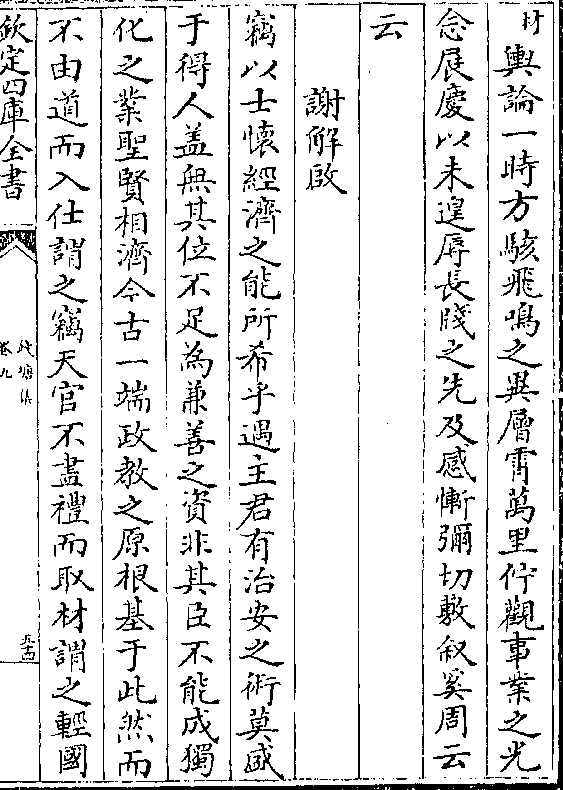 材輿論一時方駭飛鳴之異層霄萬里佇觀事業之光
念展慶以未遑辱長牋之先及感慚彌切敷叙奚周云
云
謝解啟
竊以士懷經濟之能所希乎遇主君有治安之術莫盛
于得人盖無其位不足為兼善之資非其臣不能成獨
化之業聖賢相濟今古一端政教之原根基于此然而
不由道而入仕謂之竊天官不盡禮而取材謂之輕國
欽定四庫全書
錢塘集
卷九